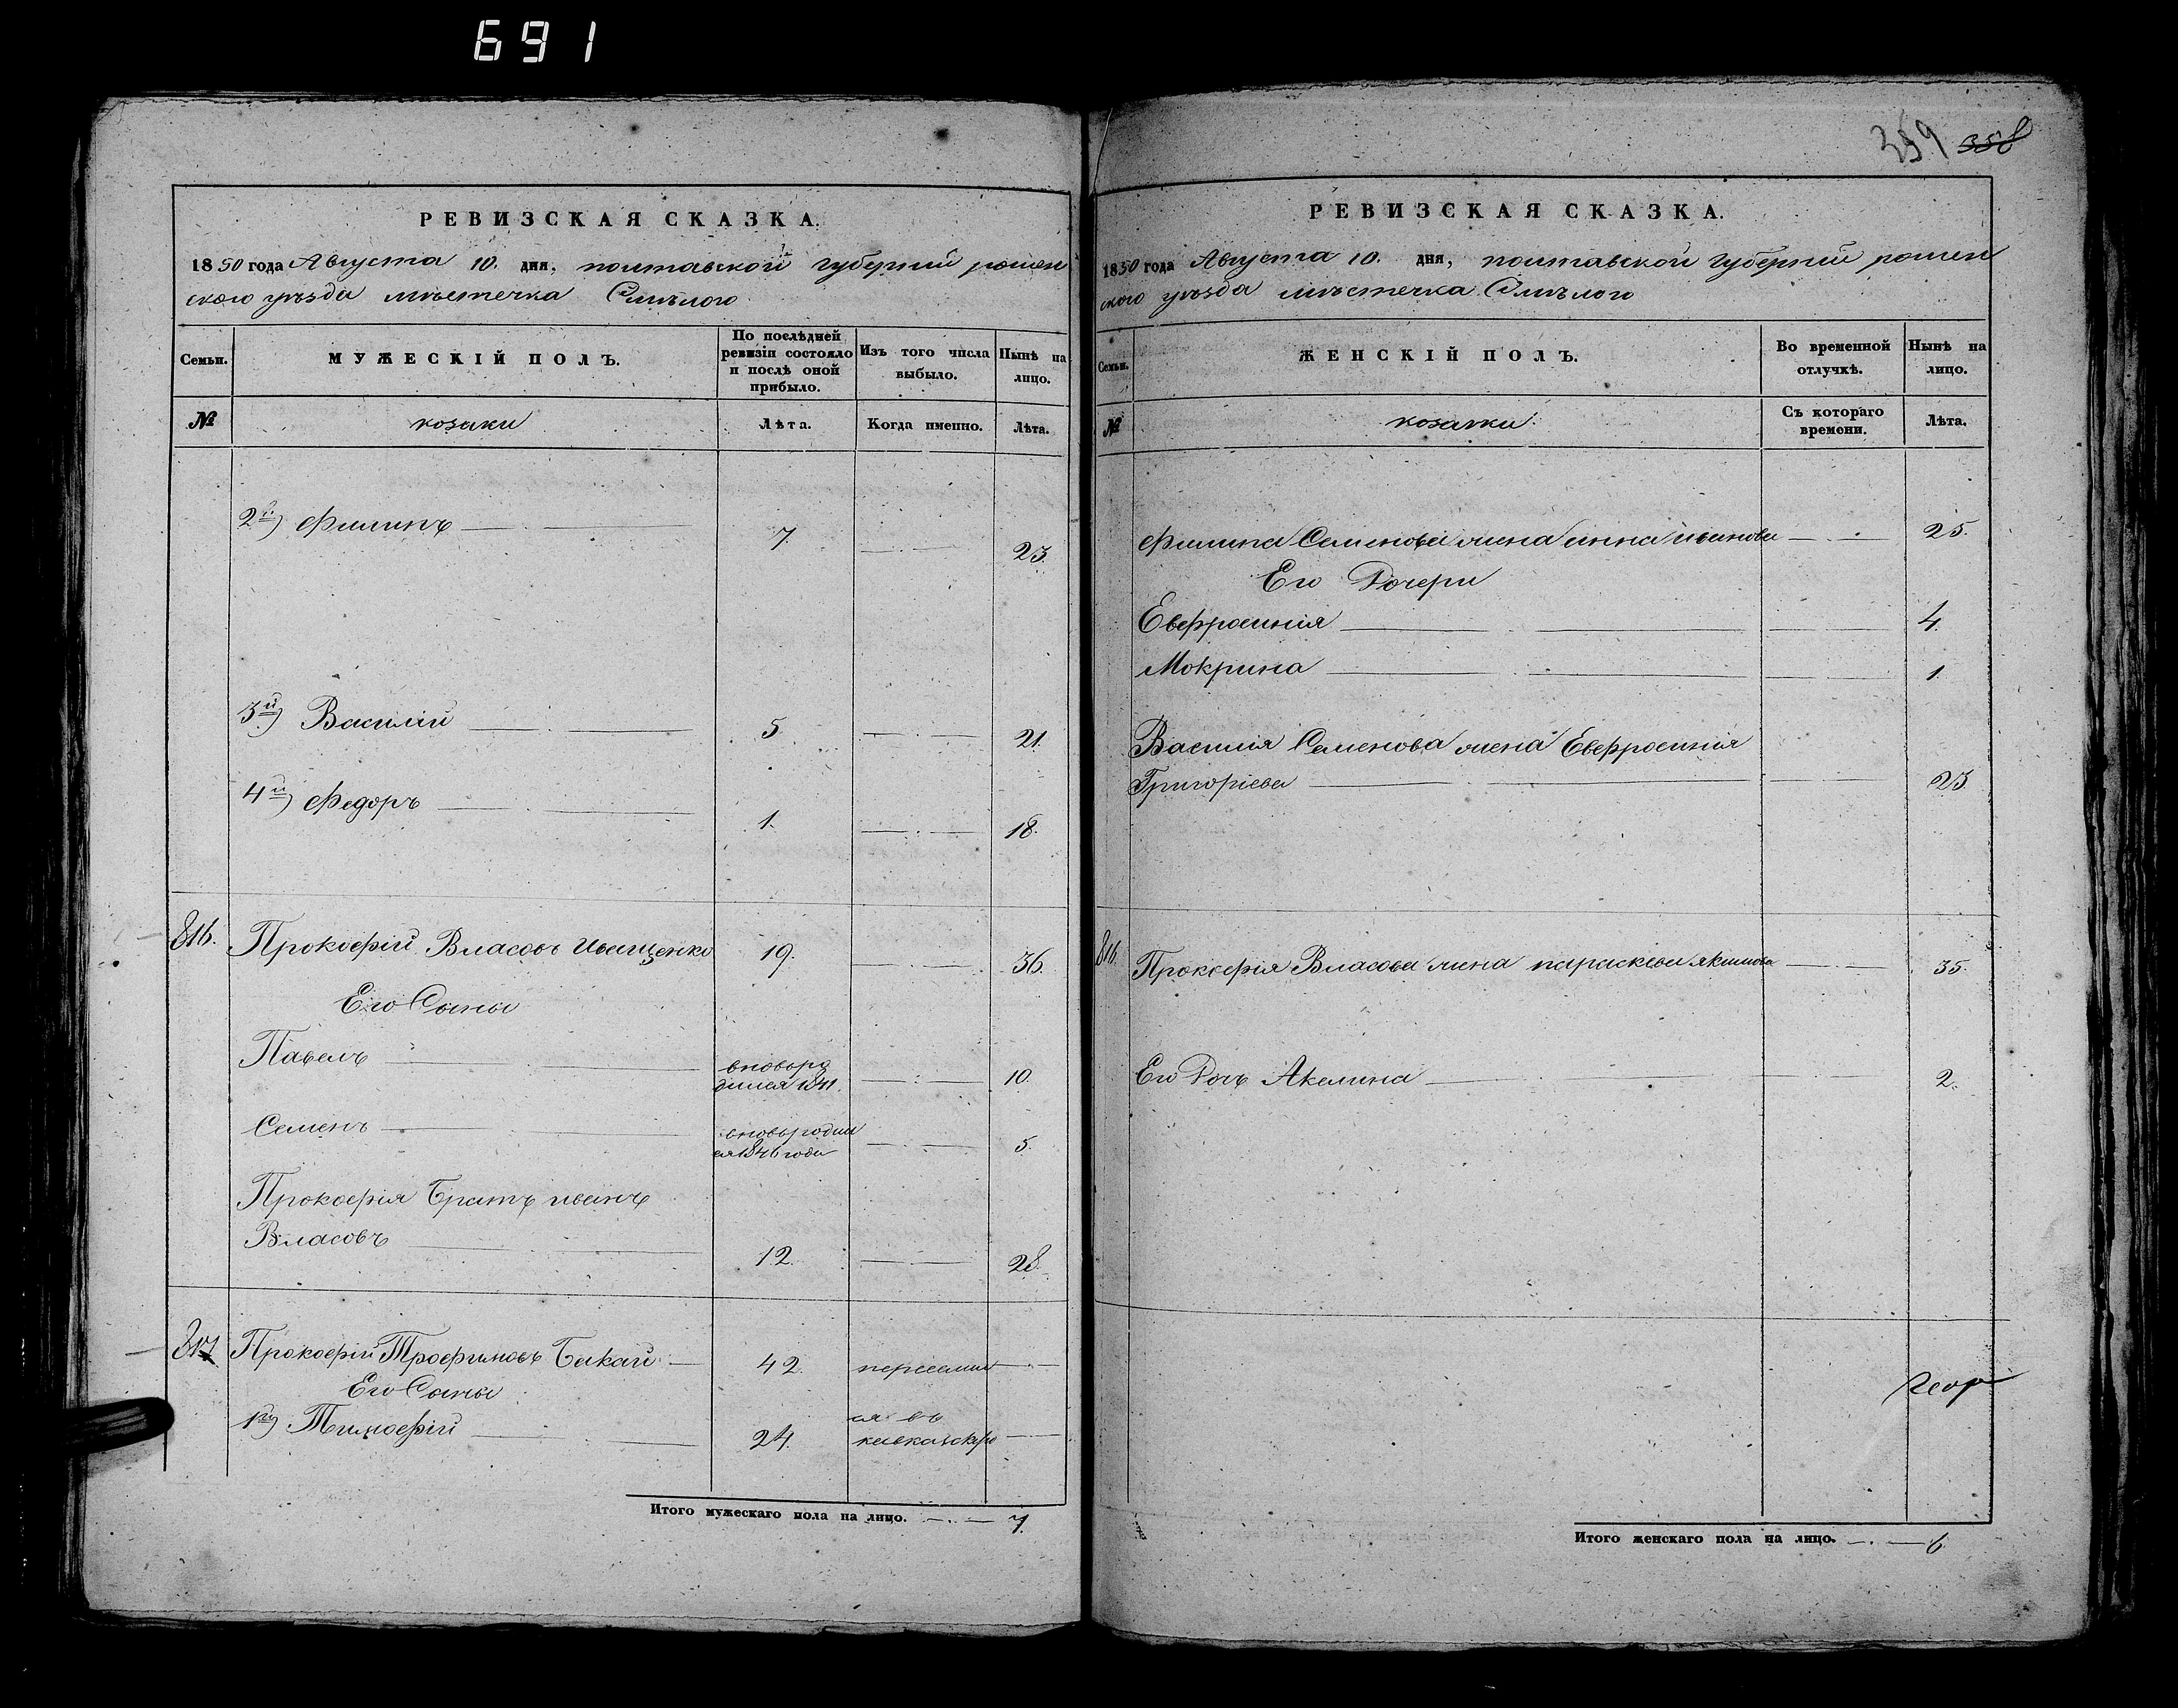 691
РЕВИЗСКАЯ СКАЗКА.
1850 года Августа 10. дня, полтавской губерніи ромен
ского уѣзда мѣстечка Смѣлого
Семьи.
МУЖЕСКІЙ ПОЛЪ.
По послѣдней ревизіи состояло и послѣ оной прибыло.
Изъ того числа выбыло.
Нынѣ на лицо.
№
козаки
Лѣта.
Когда именно.
Лѣта.
2й) Филипъ 7 23.
3й) Василій 5 21.
4й) Федоръ 1. 18.
816. Прокофій Власовъ Иващенко 19. 36.
Его Сыны
Павелъ вновьро
дился 1841. 10.
Семенъ вновьродил
ся 1846 года 5.
Прокофія Братъ иванъ
Власовъ 12. 28.
817 Прокофій Трофимовъ Бакай 42. переселил
Его Сыны
ся въ
1й) Тимофій 24. кавказскую
Итого мужескаго пола на лицо. 7.
359 358
РЕВИЗСКАЯ СКАЗКА.
1850 года Августа 10. дня, полтавской губерніи ромен
ского уѣзда мѣстечка Смѣлого
Семьи.
ЖЕНСКІЙ ПОЛЪ.
Во временной отлучкѣ.
Нынѣ на лицо.
№
козачки.
Съ котораго времени.
Лѣта.
Филипа Семенова жена анна иванова 25.
Его Дочери
Евфросинія 4.
Мокрина 1.
Василія Семенова жена Евфросинія
Григоріева 23.
816. Прокофія Власова жена параскева якимова 35.
Его Дочь Акелина 2.
Итого женскаго пола на лицо. 6